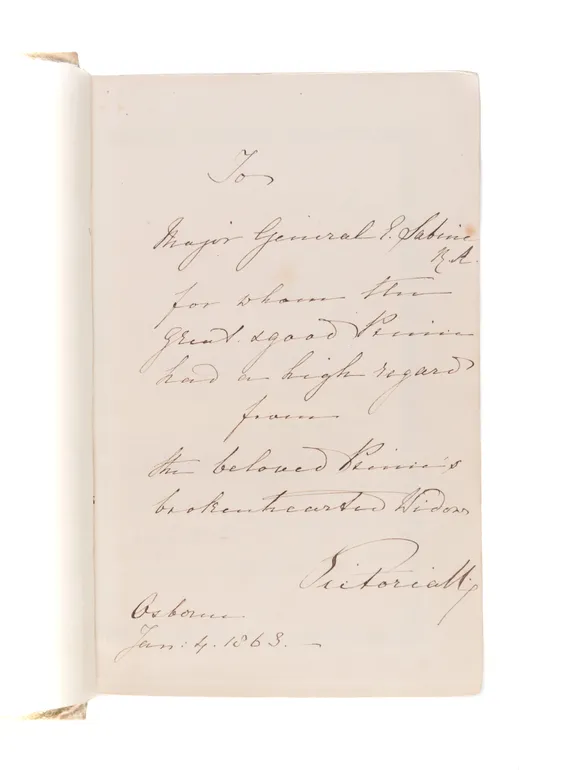 To
Major General E. Sabine
R.A.
for whom the
great & good Prince
had a high regard
from
the beloved Prince's
brokenhearted Widow
Victoria R.
Osborne
Jan: 4. 1863. —